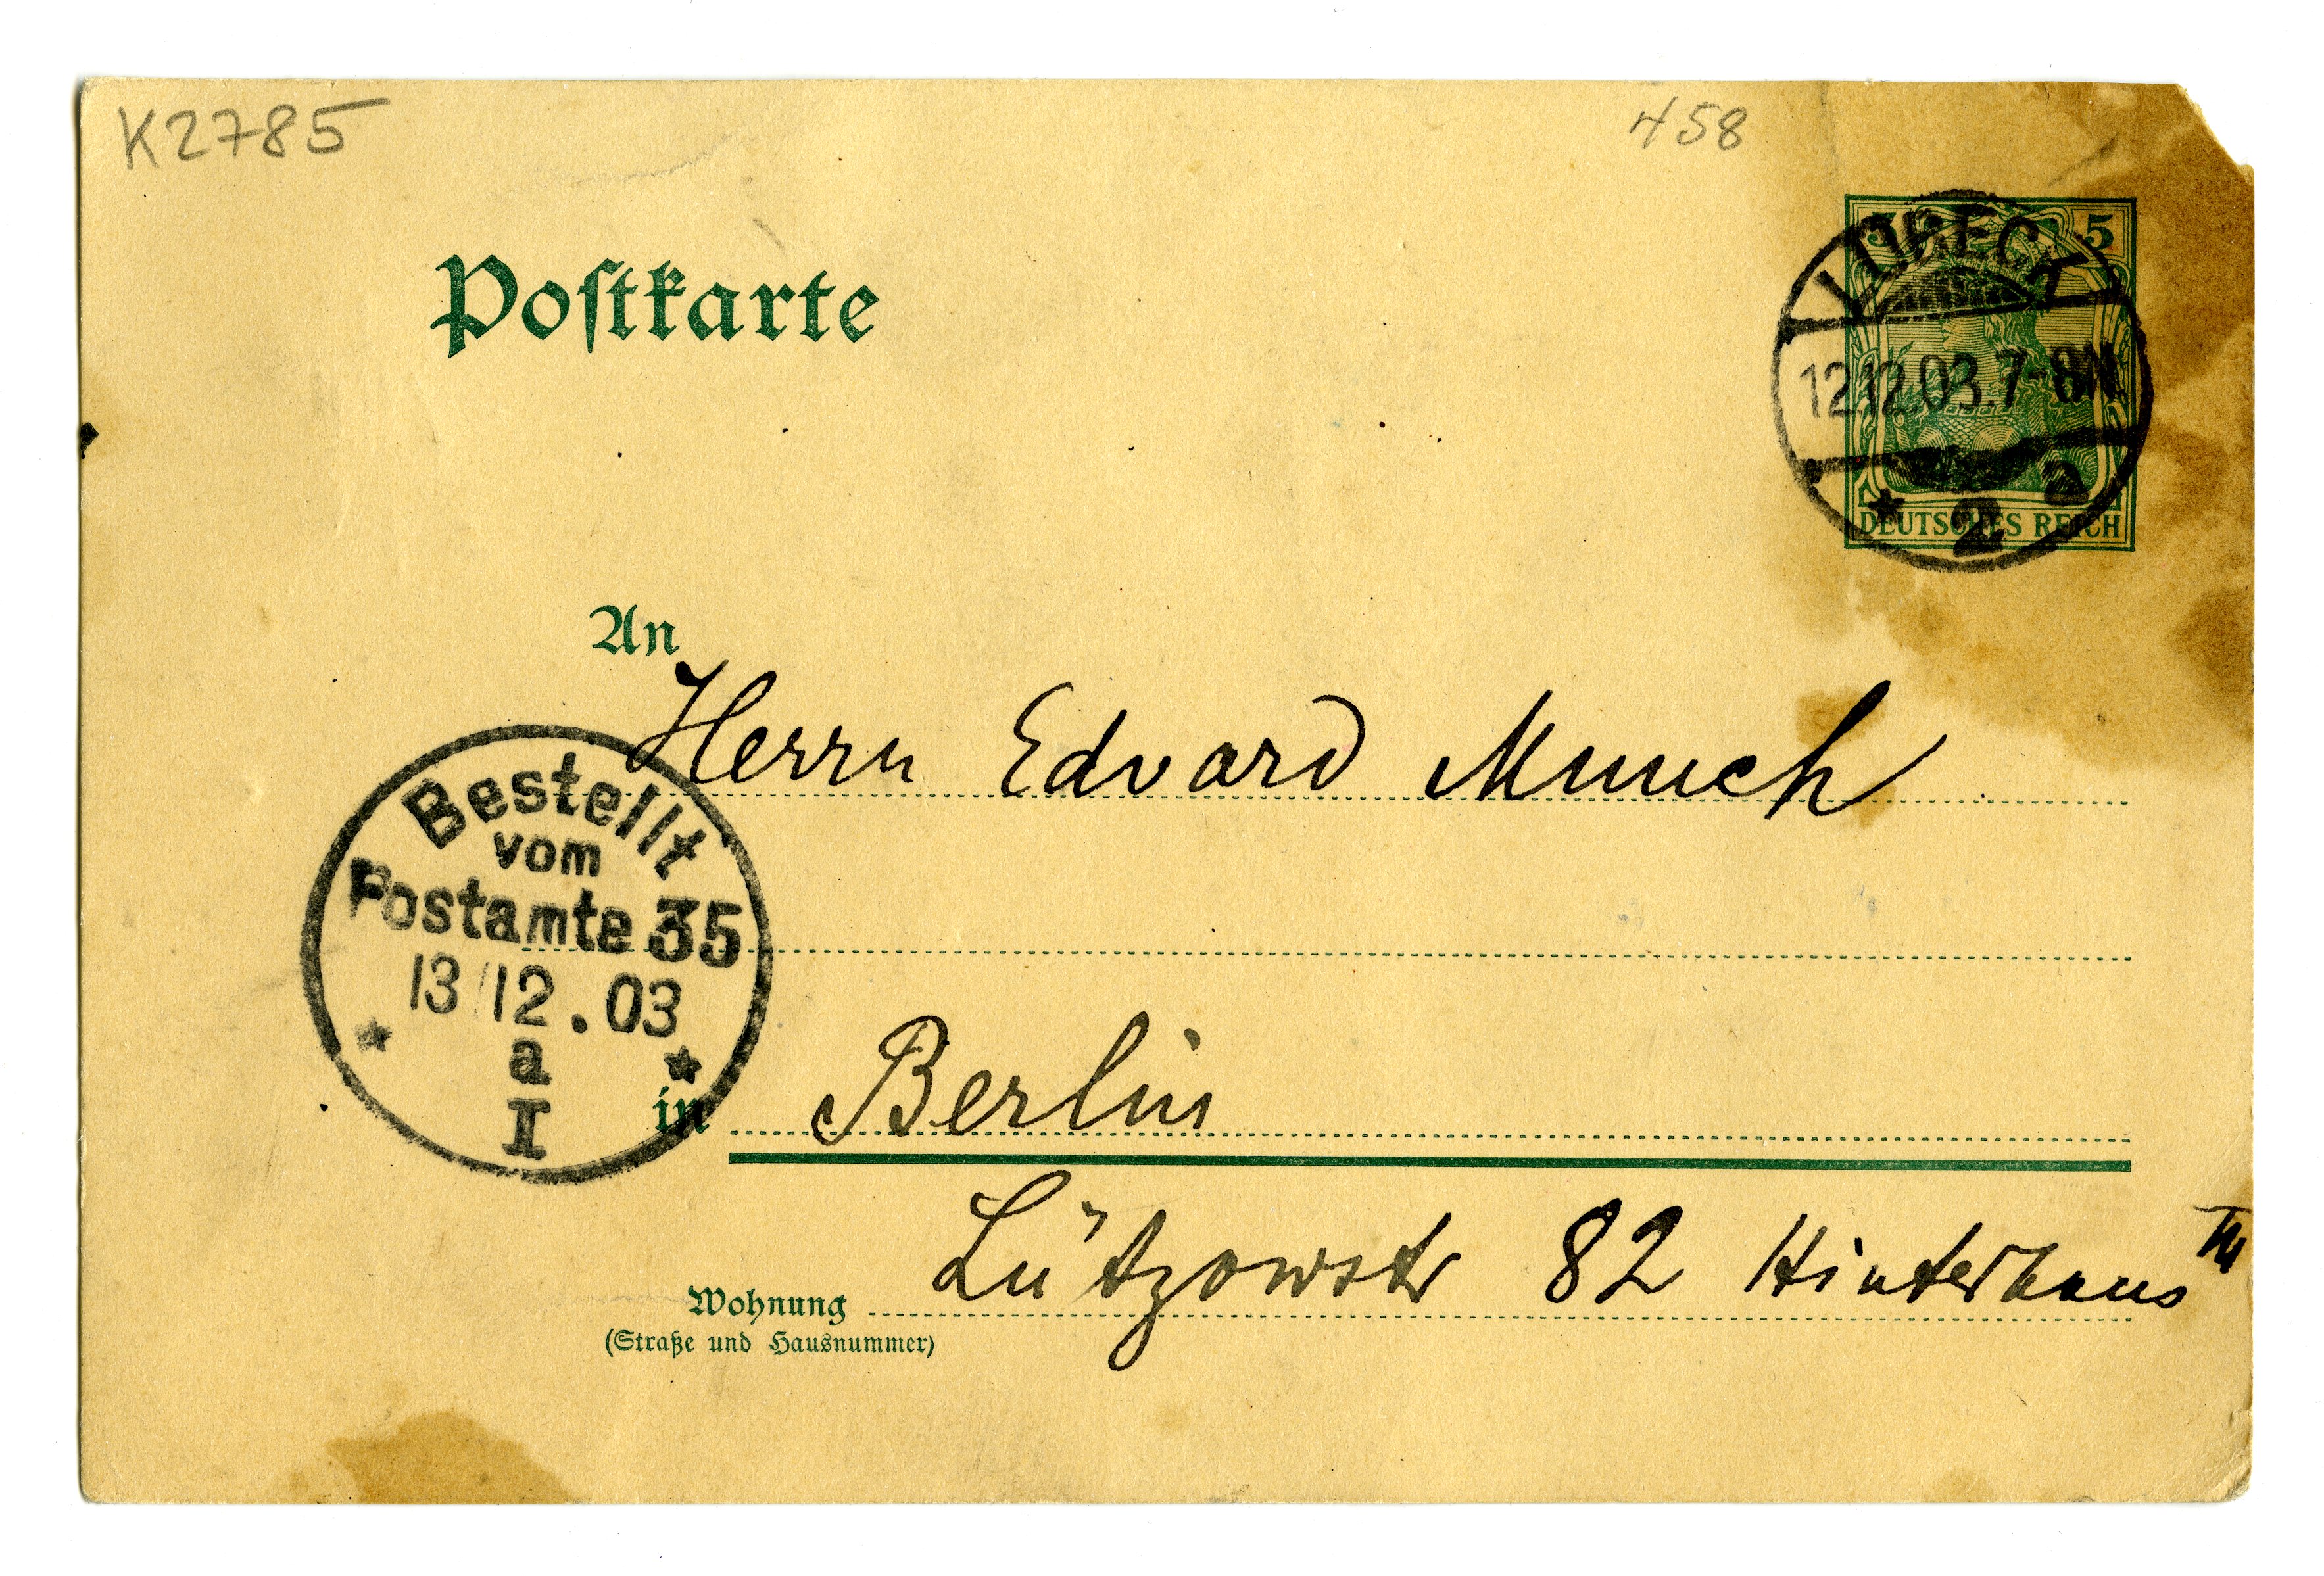 K2785
458
Postkarte
5 5
LÜBECK
12.12.03.7-8N.
* 2 a
DEUTSCHES REICH
An
Herrn Edvard Munch
Bestellt
vom
Postamte 35
13/12.03
* a *
I
in Berlin
Lützowstr 82 Hinterhaus III
Wohnung
(Straße und Hausnummer)